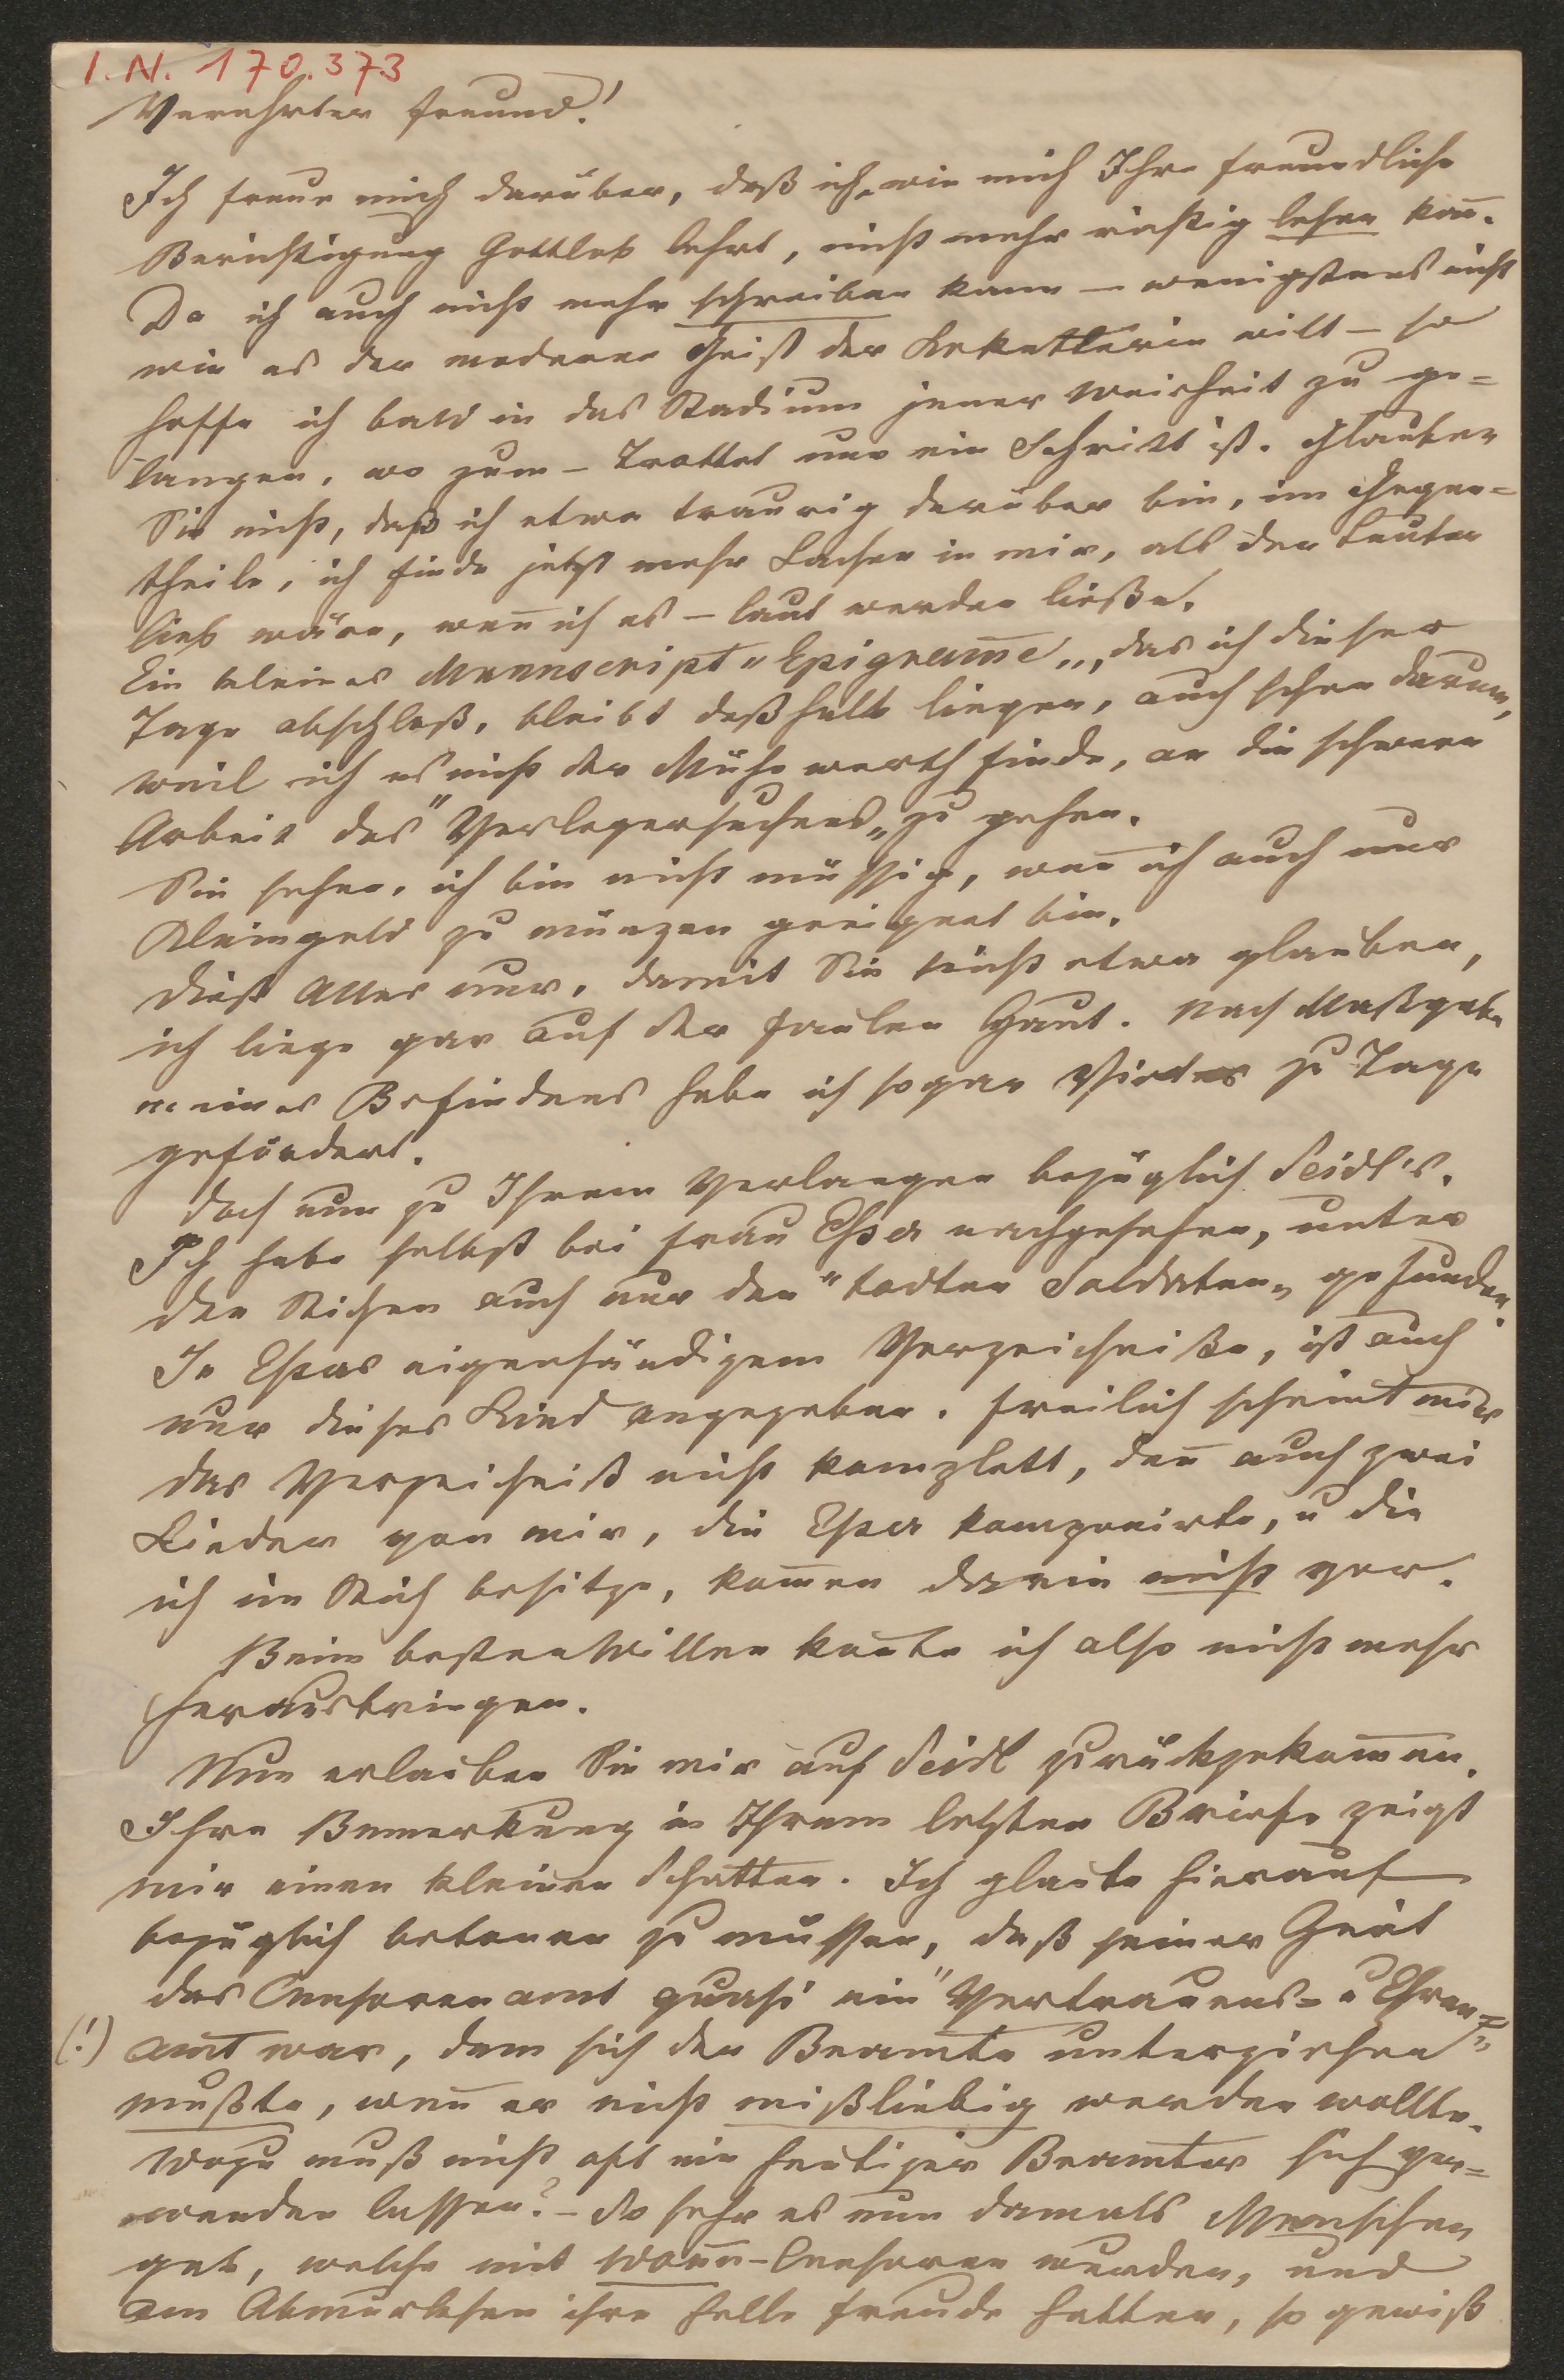 I.N. 170.373
Verehrter Freund!
Ich freue mich darüber, daß ich, wie mich Ihre freundliche
Berichtigung Gottlob lehrt, nicht mehr richtig lesen kan̄.
Da ich auch nicht mehr schreiben kann – wenigstens nicht
wie es der moderne Geist der will – so
hoffe ich bald in das Stadium jener Weisheit zu ge=
langen, wo zum – Trottel nur ein Schritt ist. Glauben
Sie nicht, daß ich etwa traurig darüber bin, im Gegen=
theile, ich finde jetzt mehr Lachen in mir, als den Leuten
lieb wäre, wen̄ ich es – laut werden ließe.
Ein kleines Manuscript "Epigram̄e", das ich dieser
Tage abschloß, bleibt deßhalb liegen, auch schon darum,
weil ich es nicht der Mühe werth finde, an die schwere
Arbeit des "Verlegersuchens" zu gehen.
Sie sehen, ich bin nicht müssig, wen̄ ich auch nur
Kleingeld zu münzen geeignet bin.
Dieß Alles nur, damit Sie nicht etwa glauben,
ich liege gar auf der faulen Haut. Nach Maßgabe
meines Befindens habe ich sogar Vieles zu Tage
gefördert.
Doch nun zu Ihrem Verlangen bezüglich Seidl's.
Ich habe selbst bei Frau Esser nachgesehen, unter
den Stichen auch nur den "todten Soldaten" gefunden.
In Essers eigenhändigem Verzeichniße, ist auch
nur dieses Lied angegeben. Freilich scheint mir
das Verzeichniß nicht komplett, den̄ auch zwei
Lieder von mir, die Esser komponirte, u die
ich im Stich besitze, kom̄en darin nicht vor.
Beim besten Willen kon̄te ich also nicht mehr
herausbringen.
Nun erlauben Sie mir auf Seidl zurückzukom̄en.
Ihre Bemerkung in Ihrem letzten Briefe zeigt
mir einen kleinen Schatten. Ich glaube hierauf
bezüglich betonen zu müssen, daß seiner Zeit
das Censorenamt quasi ein "Vertrauens= u Ehren=
(!) amt" war, dem sich der Beamte unterziehen
mußte, wen̄ er nicht mißliebig werden wollte.
Wozu muß nicht oft ein heutiger Beamter sich ver=
wenden lassen? – So sehr es nun damals Menschen
gab, welche mit Won̄e-Censoren wurden, und
am Abmurksen ihre helle Freude hatten, so gewiß